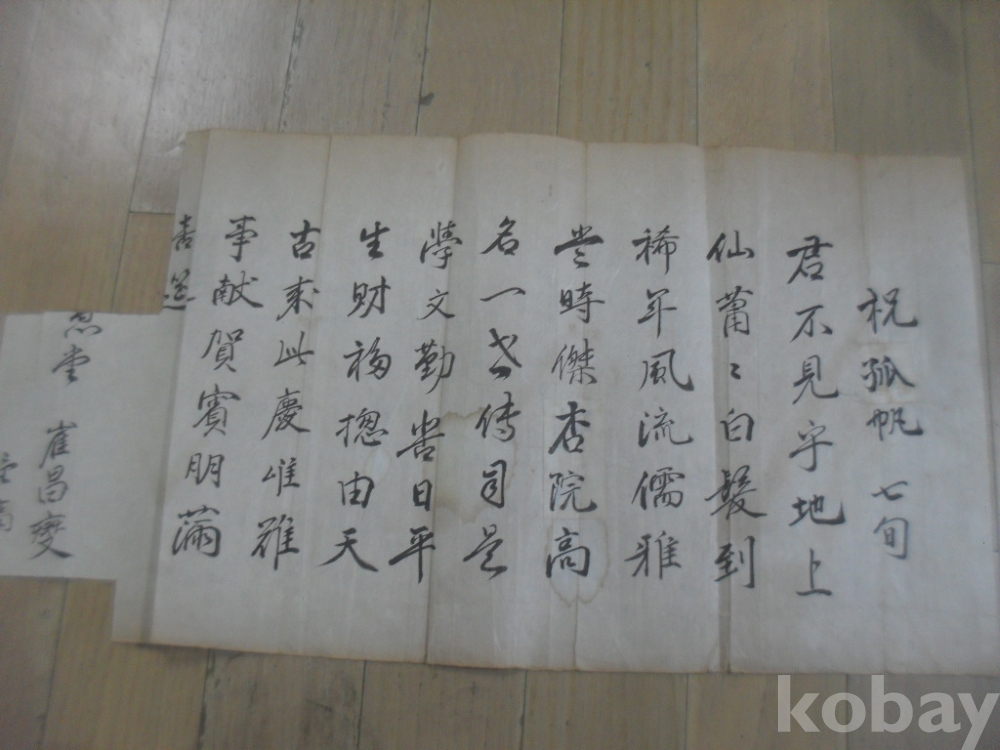 祝孤帆七旬
君不見宇地上
仙蕭々白髮到
稀年風流儒雅
當時傑杏院高
名一世傳自是
學文勤苦日平
生財福摠由天
古來此慶唯難
事献賀賓朋滿
喜筵
堂 崔昌燮
kobay